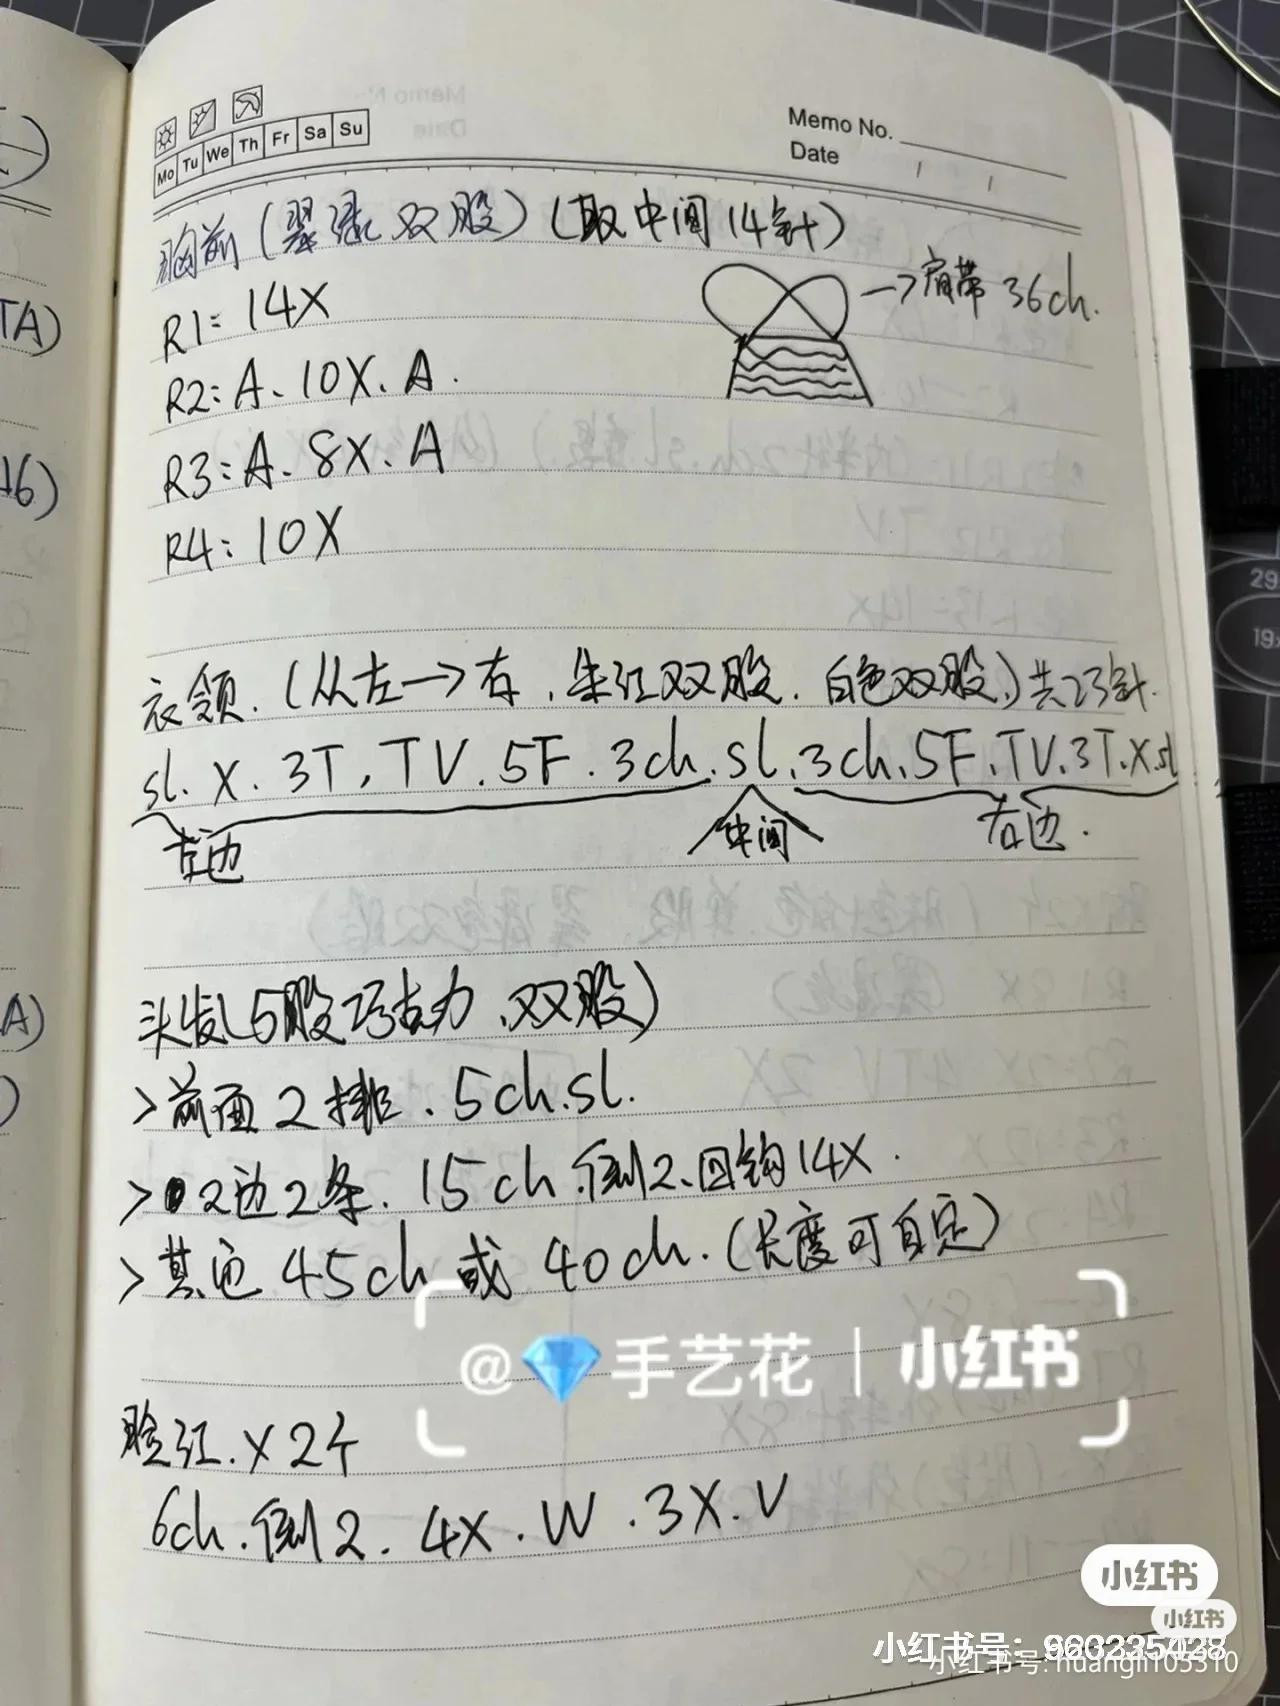 Memo No.
Date
Mo Tu We Th Fr Sa Su
胸前(翠绿双股)(取中间14针)
→肩带 36ch.
R1: 14X
R2: A、10X、A.
R3: A、8X、A
R4: 10X
衣领.(从左→右,朱红双股.白色双股)共23针.
sl.X.3T,TV.5F.3ch.sl.3ch.5F.TV.3T.X.sl
左边
中间
右边.
头发(5股巧克力、双股)
>前面2排.5ch.sl.
>2边2条.15ch.倒2、回钩14X.
>其它45ch或40ch.(长度可自定)
@💎手艺花|小红书
脸红.X2个
6ch.倒2.4X.W.3X.V
小红书
小红书
TA)
A)